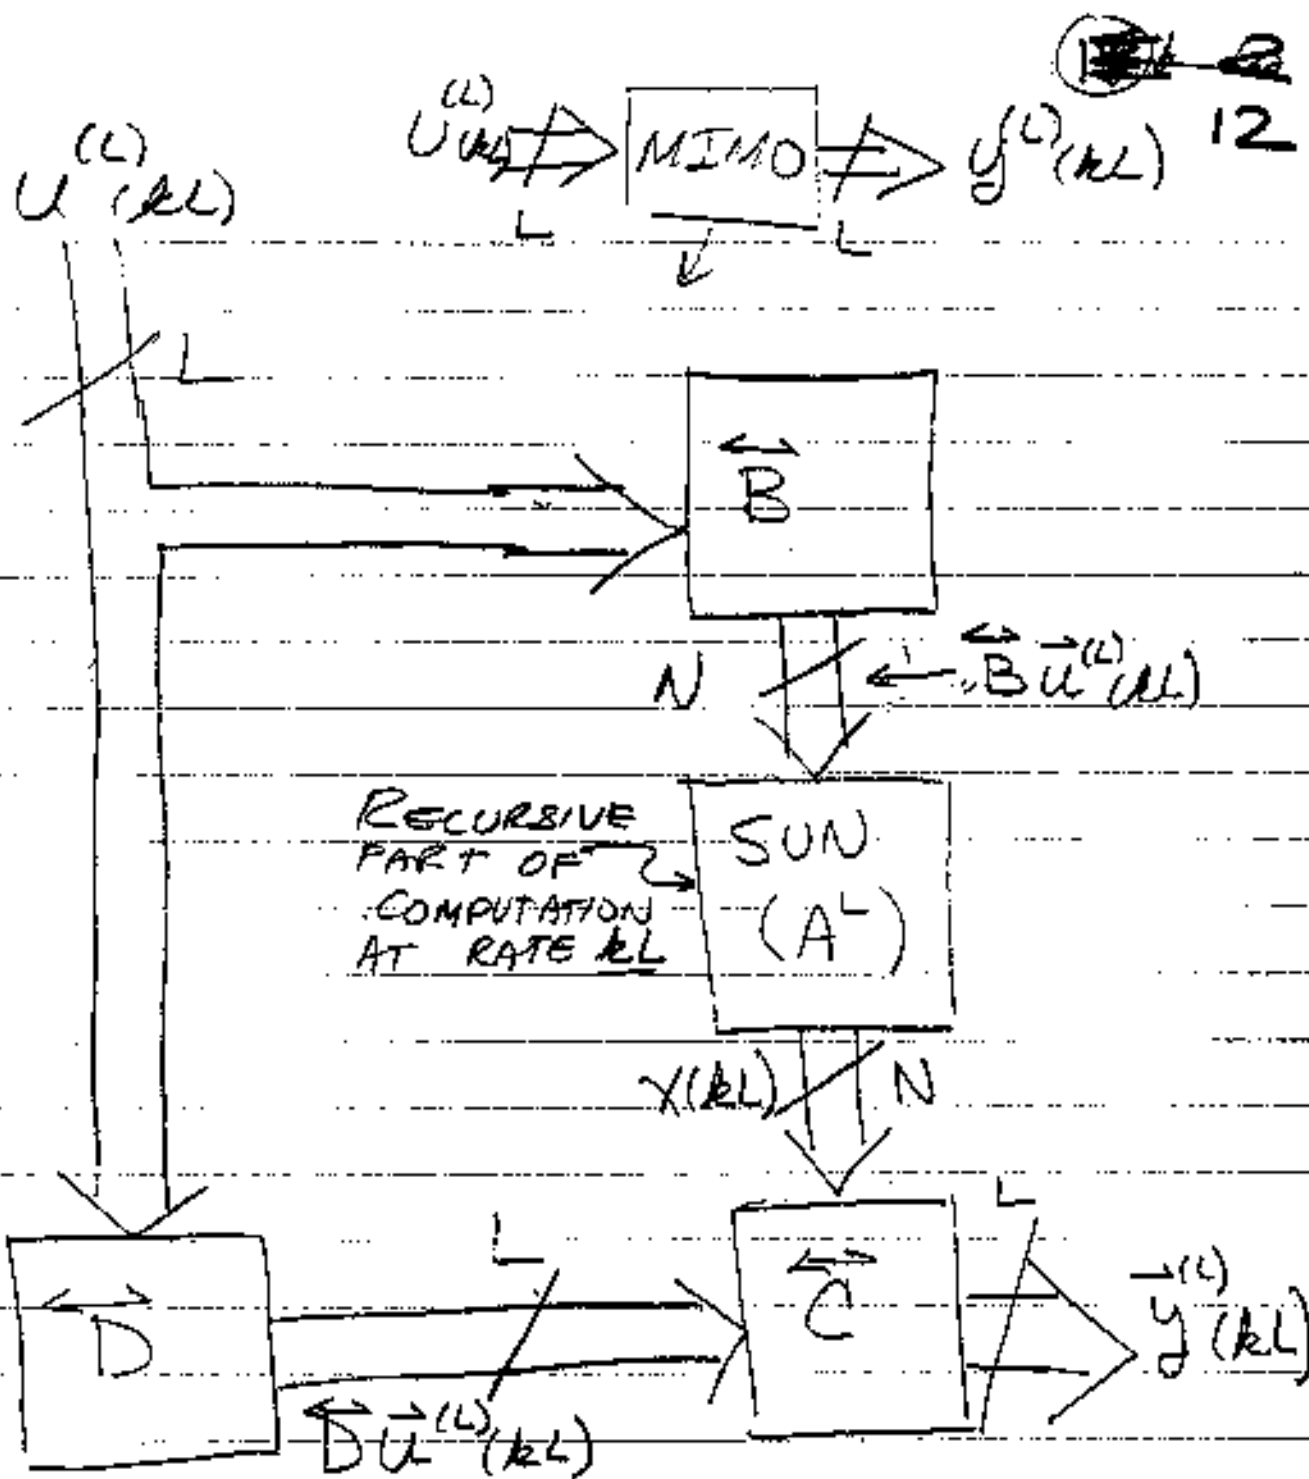 12
U^(L)(kL) MIMO y^(L)(kL)
L L
U^(L)(kL)
L
B
N
B u^(L)(kL)
RECURSIVE
PART OF
COMPUTATION
AT RATE kL
SUN
(A^L)
X(kL) N
L L
D
C
y^(L)(kL)
D u^(L)(kL)